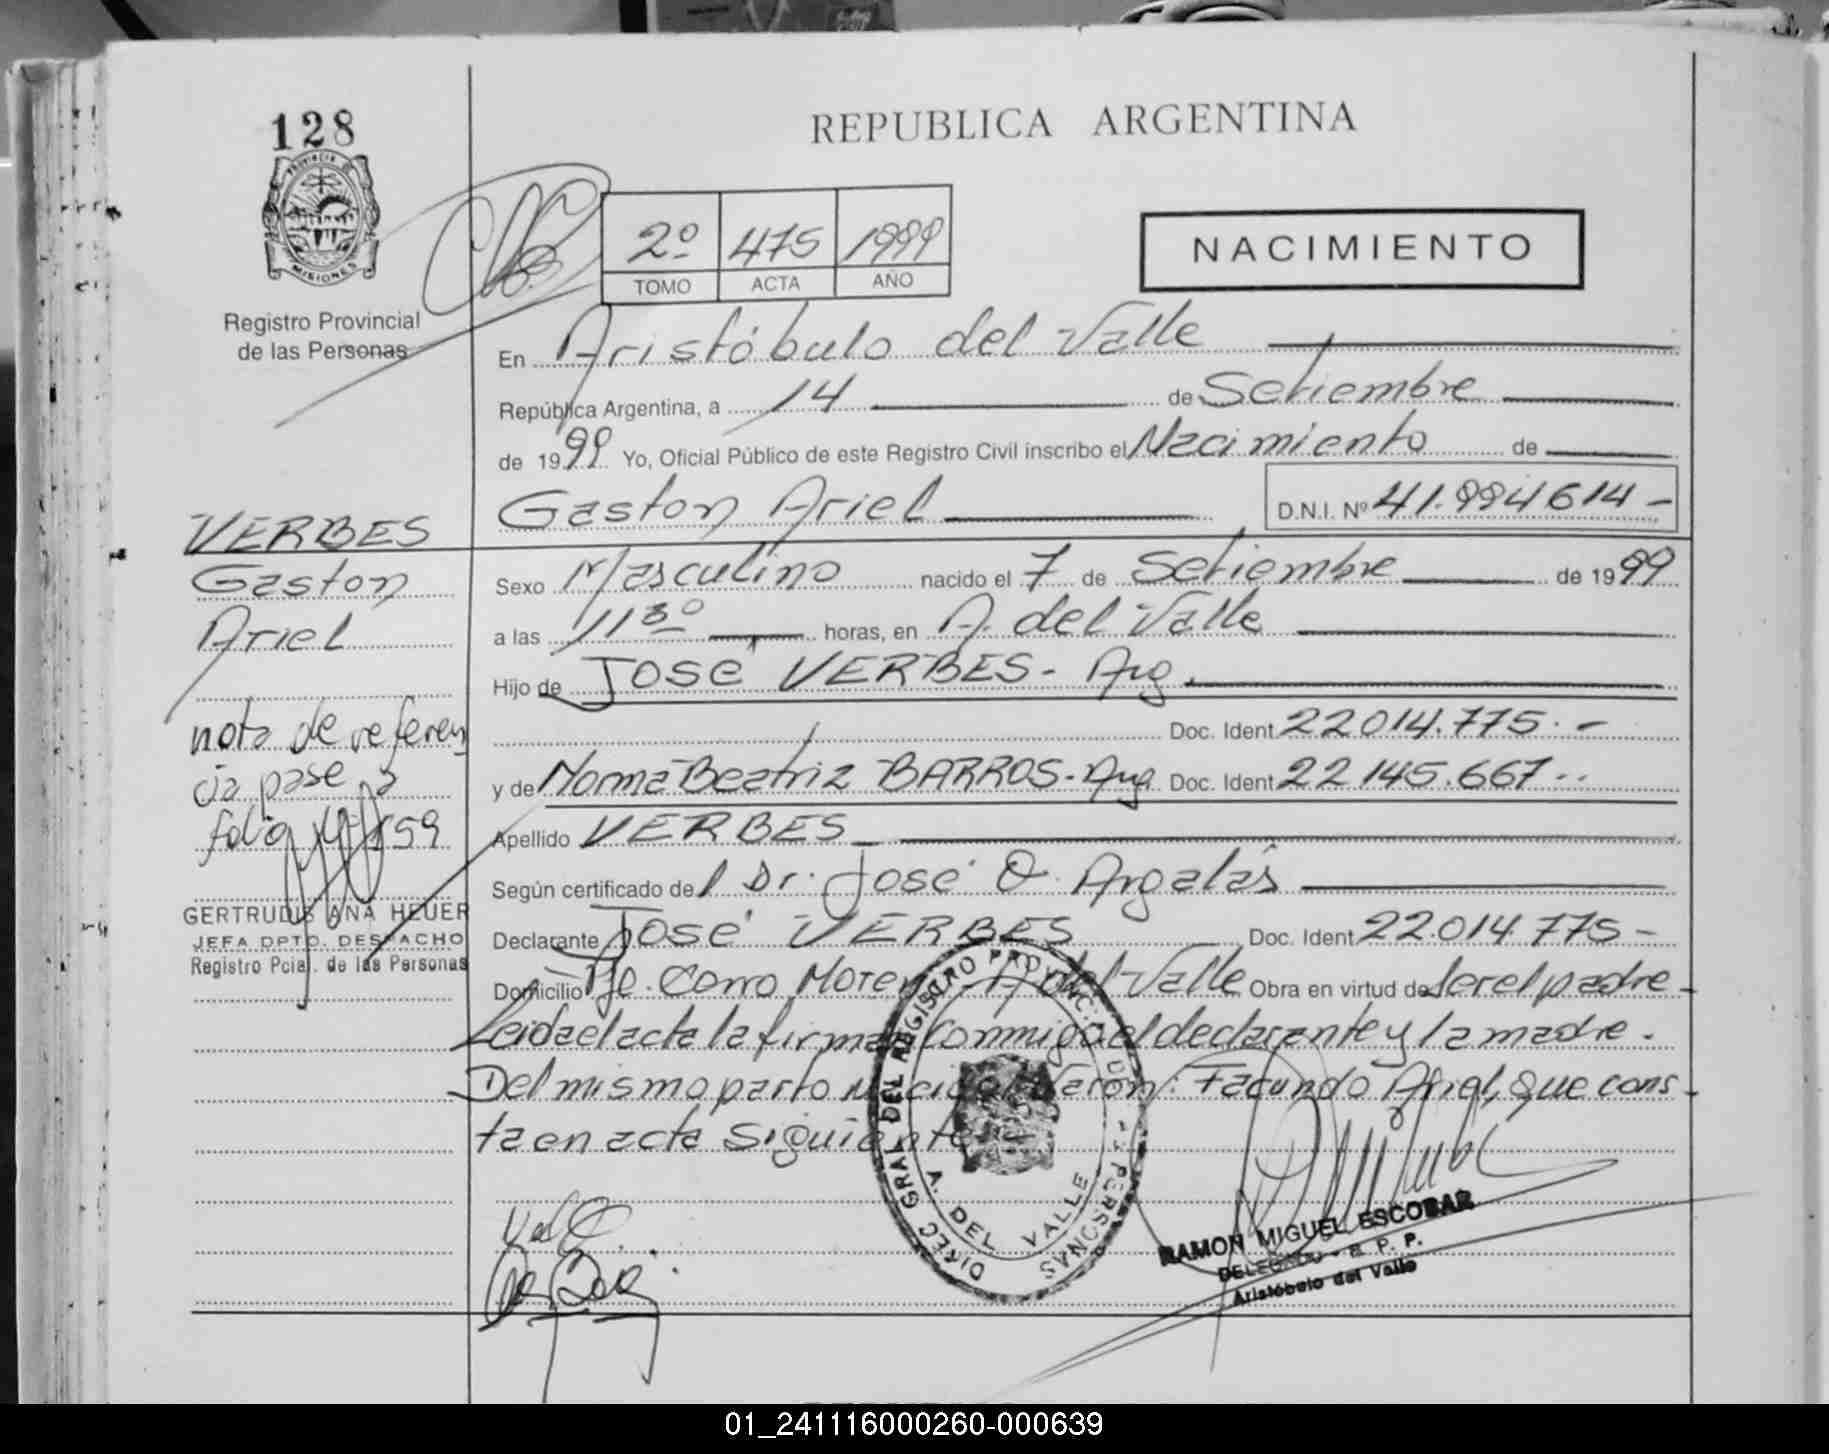 128
PROVINCIA DE
MISIONES
Registro Provincial
de las Personas
REPUBLICA ARGENTINA
2º 475 1999
TOMO ACTA AÑO
NACIMIENTO
En Aristóbulo del Valle
República Argentina, a 14 de Setiembre
de 1999 Yo, Oficial Público de este Registro Civil inscribo el Nacimiento de
Gaston Ariel D.N.I. Nº 41.994614-
VERBES
Gaston
Ariel
nota de referen
cia pase a
folio 159
GERTRUDIS ANA HEUER
JEFA DPTO. DESPACHO
Registro Pcial. de las Personas
Sexo Masculino nacido el 7 de Setiembre de 1999
a las 11 30 horas, en A. del Valle
Hijo de José VERBES - Arg.
Doc. Ident 22014.775.-
y de Norma Beatriz BARROS - Arg Doc. Ident 22145.667..
Apellido VERBES
Según certificado del Dr. José O. Argalás
Declarante José VERBES Doc. Ident 22.014.775-
Domicilio Pje. Cerro Moreno - A del Valle Obra en virtud de ser el padre
Leida el acta la firman conmigo el declarante y la madre.
Del mismo parto nació Varón: Facundo Ariel, que cons
ta en acta siguiente
DIREC GRAL DEL REGISTRO PROVINC. DE LAS PERSONAS
A. DEL VALLE
RAMON MIGUEL ESCOBAR
DELEGADO - R. P. P.
Aristóbulo del Valle
01_241116000260-000639